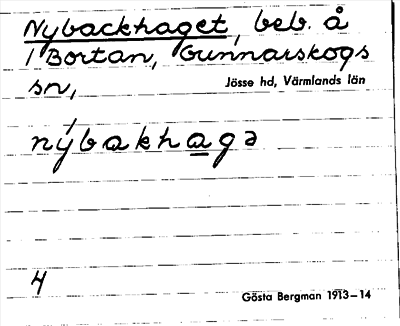 Nybackhaget, beb. å
1 Bortan, Gunnarskogs
sn, Jösse hd, Värmlands län
nýbakhagə
4
Gösta Bergman 1913–14